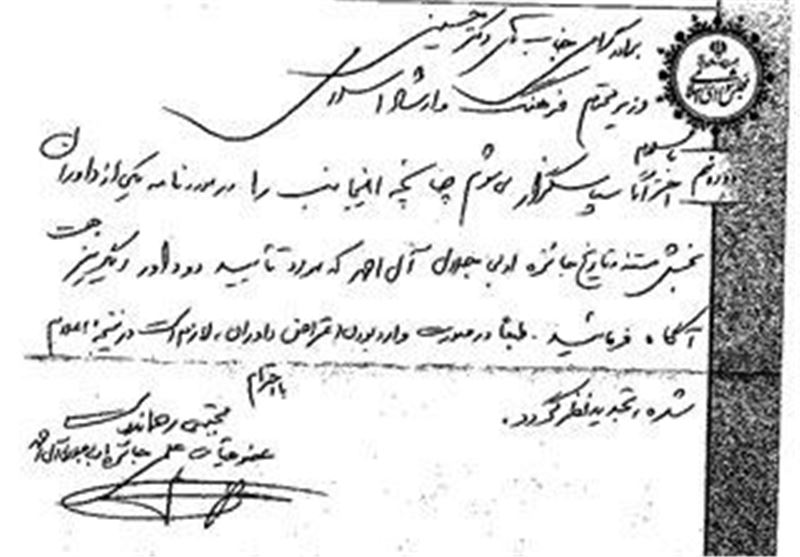 برادر گرامی جناب آقای دکتر حسینی
وزیر محترم فرهنگ و ارشاد اسلامی
مجلس شورای اسلامی
با سلام
دوره نهم
احتراماً سپاسگزار می شوم چنانچه اینجانب را در مورد نامه یکی از داوران
بخش مستند و تاریخ جائزه ادبی جلال آل احمد که مورد تأیید دو داور دیگر نیز
آگاه فرمائید. طبعاً در صورت وارد بودن اعتراض داوران، لازم است در نتیجه اعلام
شده، تجدید نظر گردد.
با احترام
مجتبی رحماندوست
عضو هیأت علمی جائزه ادبی جلال آل احمد